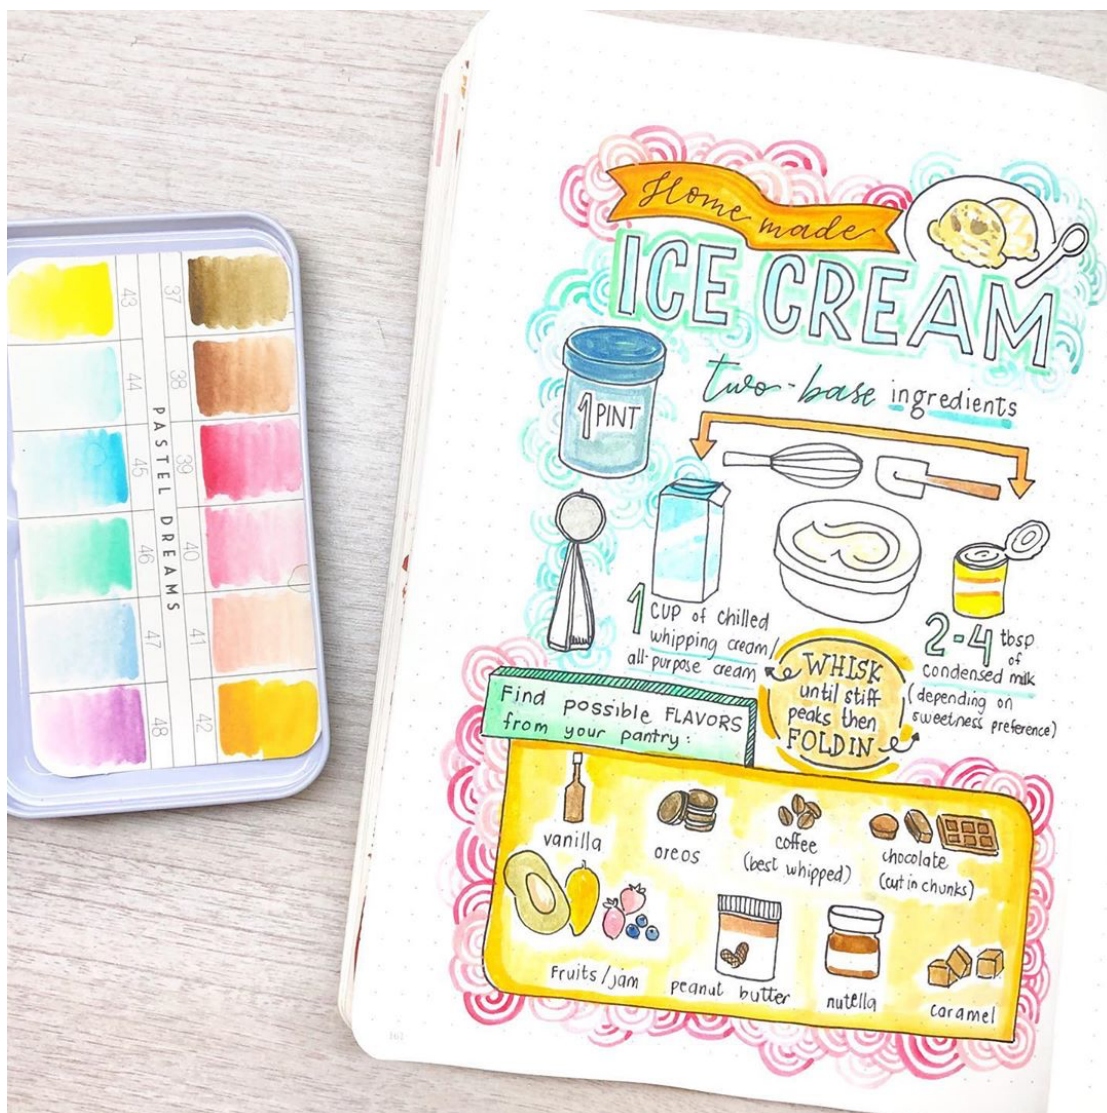 43
37
44
38
45
39
46
40
47
41
48
42
PASTEL DREAMS
Home made
ICE CREAM
two-base ingredients
1 PINT
1 CUP of chilled
whipping cream/
all-purpose cream
2-4 tbsp
of
condensed milk
(depending on
sweetness preference)
WHISK
until stiff
peaks then
FOLD IN
Find possible FLAVORS
from your pantry:
vanilla
oreos
coffee
(best whipped)
chocolate
(cut in chunks)
Fruits/jam
peanut butter
nutella
caramel
161